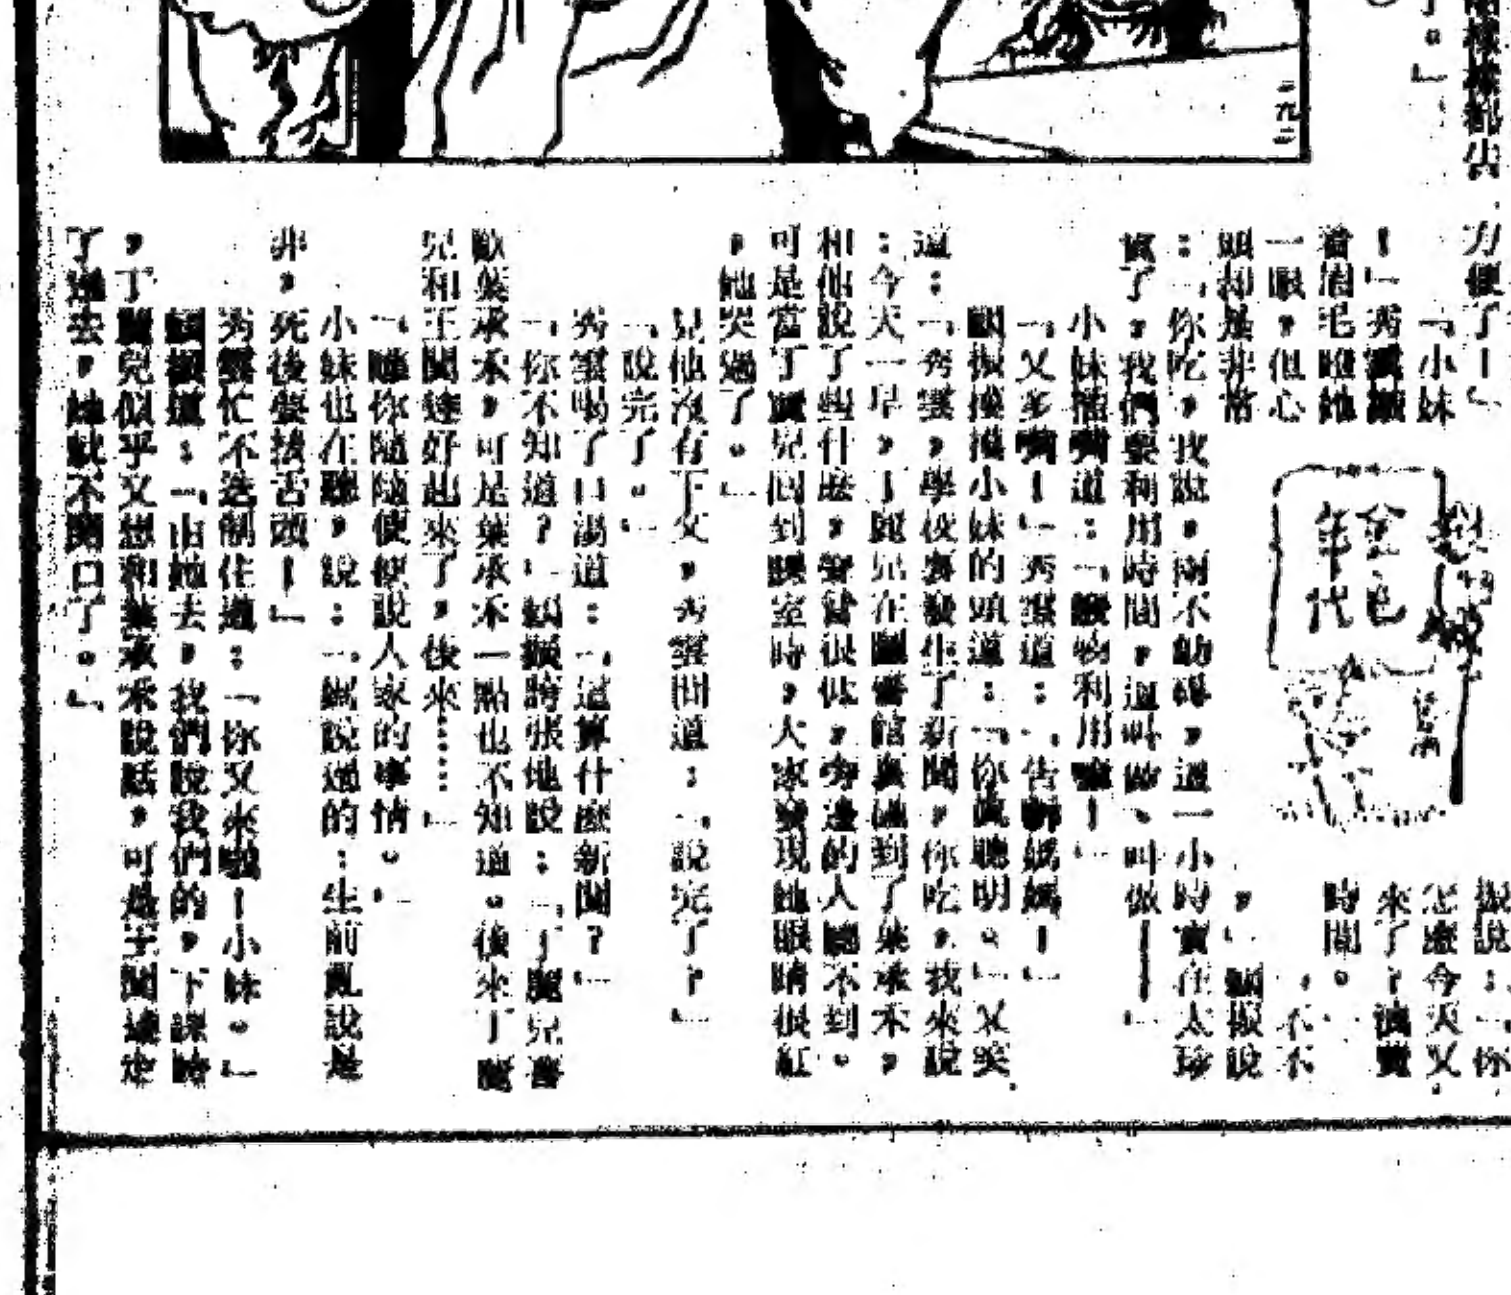 二九二
力便了！」
「小妹
！」秀
着眉毛瞪她
一眼，但心
頭却是非常
金色
年代
振說：「你
怎麼今天又
來了？
時間。
，不不
，」顧振說
：「你吃，我說，兩不妨碍，這一小時實在太珍
貴了，我們要利用時間，這叫做、叫做——」
小妹插嘴道：「廢物利用嘛！」
「又多嘴！」秀雲道：「告訴媽媽！」
顧振摸摸小妹的頭道：「你真聰明。」又笑
道：「秀雲，學校裏發生了新聞，你吃，我來說
：今天一早，丁麗兒在圖書館裏碰到了葉承禾，
和他說了些什麼，聲音很低，旁邊的人聽不到。
可是當丁麗兒回到課室時，大家發現她眼睛很紅
，她哭過了。」
見他沒有下文，秀雲問道：「說完了？」
「說完了。」
秀雲喝了口湯道：「這算什麼新聞？」
「你不知道？」顧振誇張地說：「丁麗兒喜
歡葉承禾，可是葉承禾一點也不知道。後來丁麗
兒和王聞達好起來了，後來……」
「嘩你隨隨便便說人家的事情。」
小妹也在聽，說：「媽說過的：生前亂說是
非，死後要拔舌頭！」
秀雲忙不迭制住道：「你又來啦！小妹。」
顧振道：「由她去，我們說我們的，下課時
，丁麗兒似乎又想和葉承禾說話，可是王聞達走
了過去，她就不開口了。」